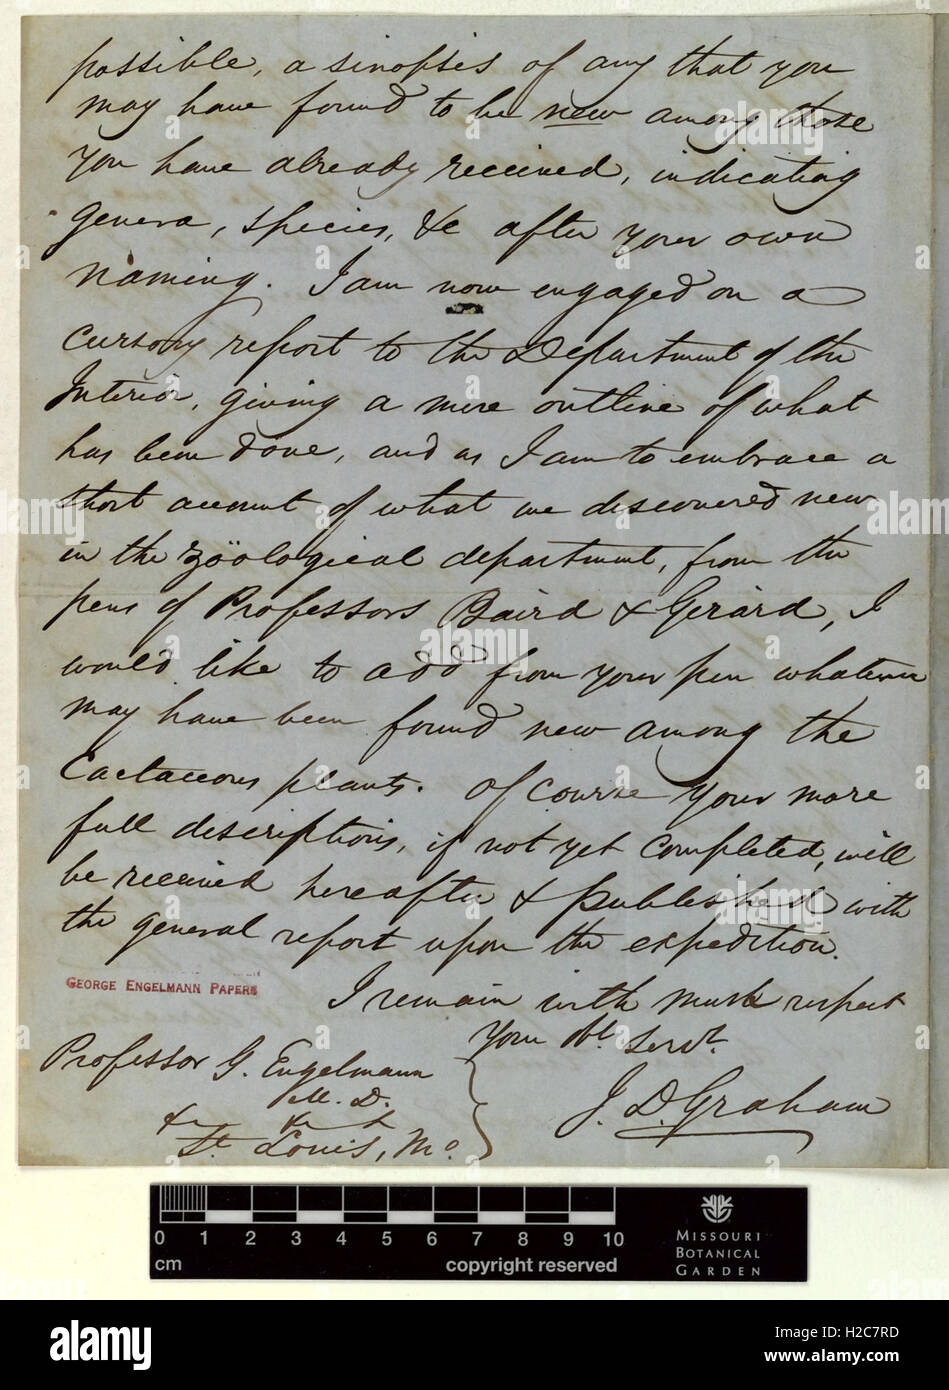 possible, a sinopsis of any that you
may have found to be new among those
you have already received, indicating
genera, species, &c after your own
naming. I am now engaged on a
cursory report to the Department of the
Interior, giving a mere outline of what
has been done, and as I am to embrace a
short account of what we discovered new
in the zöological department, from the
pens of Professors Baird & Gerárd, I
would like to add from your pen whatever
may have been found new among the
Cactaceous plants. Of course your more
full descriptions, if not yet completed, will
be received hereafter & published with
the general report upon the expedition.
GEORGE ENGELMANN PAPERS
I remain with much respect
Your Obt. Servt.
J. D. Graham
Professor G. Engelmann
M. D.
&c &c &c
St. Louis, Mo.
0 1 2 3 4 5 6 7 8 9 10
cm
copyright reserved
MISSOURI
BOTANICAL
GARDEN
alamy
Image ID: H2C7RD
www.alamy.com